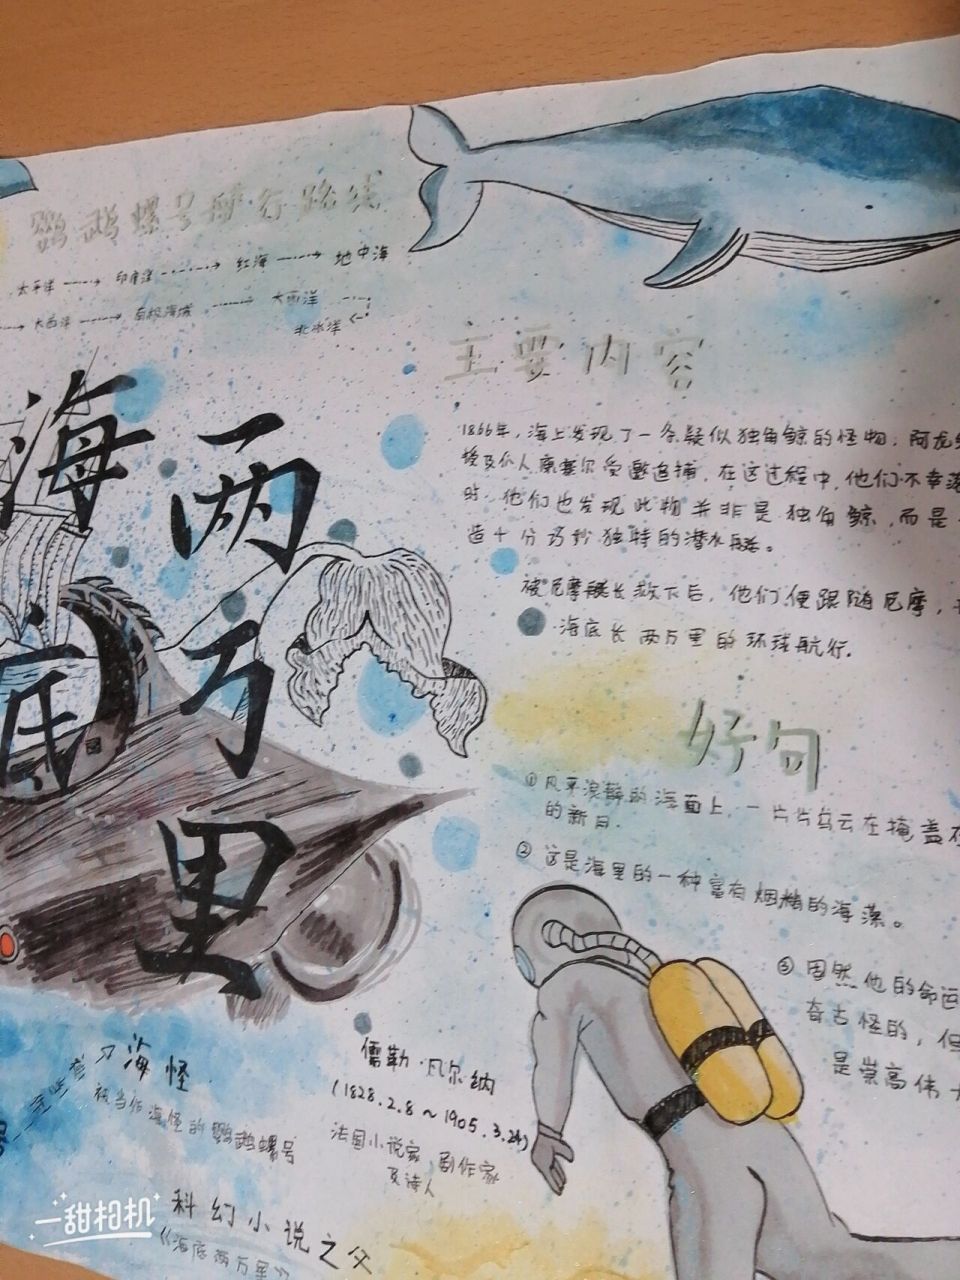 鹦鹉螺号航行路线
太平洋 印度洋 红海 地中海
大西洋 南极海域 大西洋
北冰洋
海底两万里
主要内容
1866年,海上发现了一条疑似独角鲸的怪物,阿龙
及仆人康塞尔受邀追捕,在这过程中,他们不幸落
时,他们也发现此物并非是独角鲸,而是
造十分巧妙独特的潜水艇。
被尼摩艇长救下后,他们便跟随尼摩,
海底长两万里的环球航行.
好句
①风平浪静的海面上,一片片乌云在掩盖
的新日.
②这是海里的一种富有烟精的海藻。
③固然他的命运
奇古怪的,但
是崇高伟大
海怪
被当作海怪的鹦鹉螺号
儒勒·凡尔纳
(1828.2.8~1905.3.24)
法国小说家 剧作家
及诗人
科幻小说之父
《海底两万里》
一甜相机